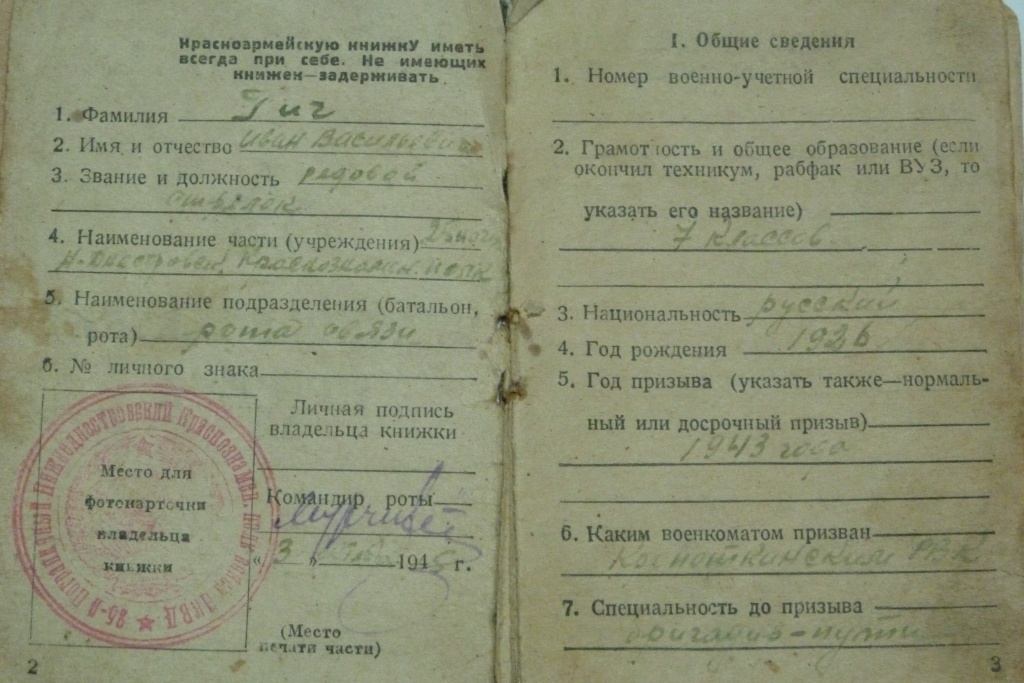 Красноармейскую книжку иметь
всегда при себе. Не имеющих
книжек—задерживать.
1. Фамилия Гич
2. Имя и отчество Иван Васильевич
3. Звание и должность рядовой
стрелок
4. Наименование части (учреждения) 25
Н. Днестровск. Краснознамен. полк
5. Наименование подразделения (батальон,
рота) рота связи
6. № личного знака
Личная подпись
владельца книжки
Место для
фотокарточки
владельца
книжки
25-й Пограничный Нижнеднестровский Краснознамен. полк войск НКВД
Командир роты
"3" 194 г.
(Место
печати части)
2
I. Общие сведения
1. Номер военно-учетной специальности
2. Грамотность и общее образование (если
окончил техникум, рабфак или ВУЗ, то
указать его название)
7 классов
3. Национальность русский
4. Год рождения 1926
5. Год призыва (указать также—нормаль-
ный или досрочный призыв)
1943 года
6. Каким военкоматом призван
РВК
7. Специальность до призыва
3